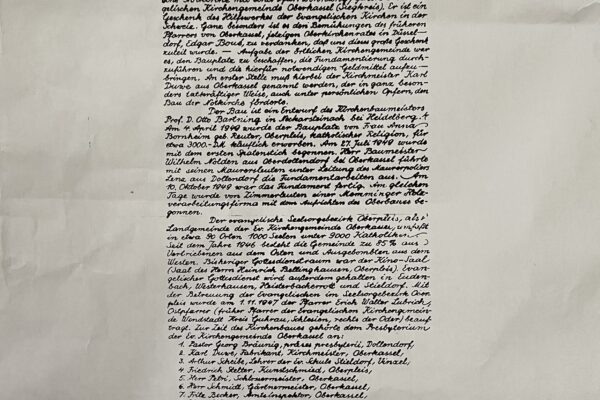 gelischen Kirchengemeinde Oberkassel (Siegkreis). Er ist ein
Geschenk des Hilfswerkes der Evangelischen Kirchen in der
Schweiz. Ganz besonders ist es den Bemühungen des früheren
Pfarrers von Oberkassel, jetzigen Oberkirchenrates in Düssel=
dorf, Edgar Boué, zu verdanken, daß uns dieses große Geschenk
zuteil wurde. — Aufgabe der örtlichen Kirchengemeinde war
es, den Bauplatz zu beschaffen, die Fundamentierung durch-
zuführen und die hierfür notwendigen Geldmittel aufzu —
bringen. An erster Stelle muß hierbei der Kirchmeister Karl
Duwe aus Oberkassel genannt werden, der in ganz beson-
ders tatkräftiger Weise, auch unter persönlichen Opfern, den
Bau der Notkirche förderte.
Der Bau ist ein Entwurf des Kirchenbaumeisters
Prof. D. Otto Bartning in Neckarsteinach bei Heidelberg.
Am 4. April 1949 wurde der Bauplatz von Frau Anna
Bornheim geb. Reuter, Oberpleis, katholischer Religion, für
etwa 3000.- DM käuflich erworben. Am 27. Juli 1949 wurde
mit dem ersten Spatenstich begonnen. Herr Baumeister
Wilhelm Nolden aus Oberdollendorf bei Oberkassel führte
mit seinen Maurersleuten unter Leitung des Maurerpoliers
Lenz aus Dollendorf die Fundamentarbeiten aus. Am
10. Oktober 1949 war das Fundament fertig. Am gleichen
Tage wurde von Zimmerleuten einer Memminger Holz-
verarbeitungsfirma mit dem Aufrichten des Oberbaues be-
gonnen.
Der evangelische Seelsorgebezirk Oberpleis, als
Landgemeinde der Ev. Kirchengemeinde Oberkassel, umfaßt
in etwa 90 Orten 1000 Seelen unter 9000 Katholiken.
Seit dem Jahre 1946 besteht die Gemeinde zu 95% aus
Vertriebenen aus dem Osten und Ausgebombten aus dem
Westen. Bisheriger Gottesdienstraum war der Kino-Saal
(Saal des Herrn Heinrich Bellinghausen, Oberpleis). Evan-
gelischer Gottesdienst wird außerdem gehalten in Euden-
bach, Westerhausen, Heisterbacherrott und Stieldorf. Mit
der Betreuung der Evangelischen im Seelsorgebezirk Ober
pleis wurde am 1.11.1947 der Pfarrer Erich Walter Lubrich,
Ostpfarrer (früher Pfarrer der Evangelischen Kirchengemein-
de Wendstadt Kreis Guhrau, Schlesien, rechts der Oder) beauf
tragt. Zur Zeit des Kirchenbaues gehörte dem Presbyterium
der Ev. Kirchengemeinde Oberkassel an:
1. Pastor Georg Bräunig, präses presbyterii, Dollendorf,
2. Karl Duwe, Fabrikant, Kirchmeister, Oberkassel,
3. Arthur Scheibe, Lehrer der ev. Schule Stieldorf, Vinxel,
4. Friedrich Stelter, Kunstschmied, Oberpleis,
5. Herr Petri, Schlossermeister, Oberkassel,
6. Herr Schmidt, Gärtnermeister, Oberkassel,
7. Fritz Becker, Amtsinspektor, Oberkassel,